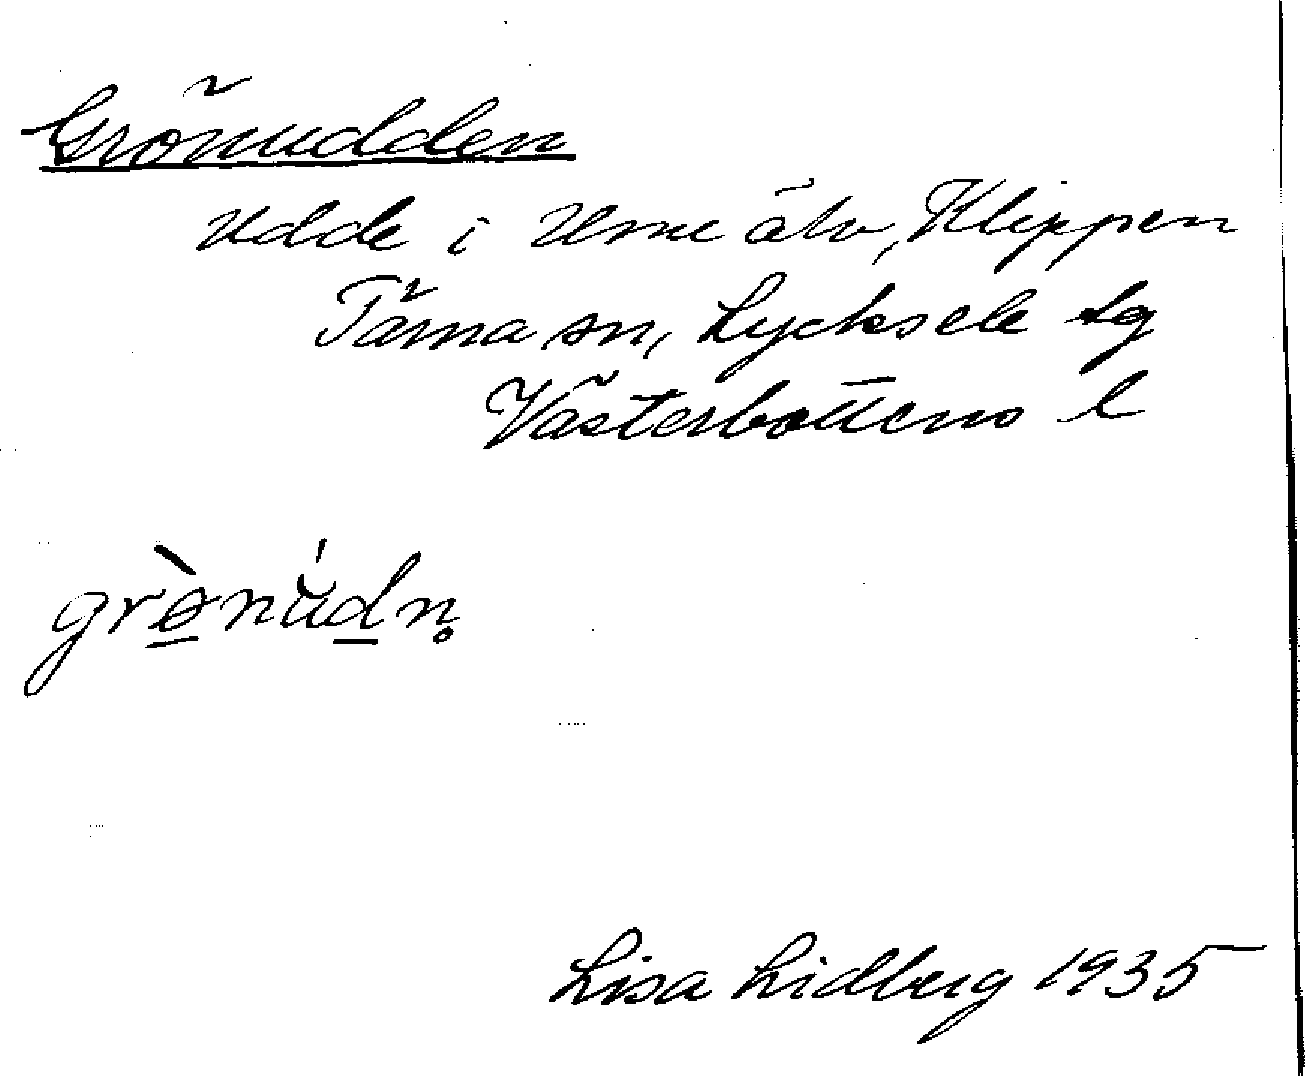 Grönudden
Udde i Ume älv, Klippen
Tärna sn, Lycksele lg
Västerbottens l
grø̠̀nu̇́d̠n̥
Lisa Lidberg 1935